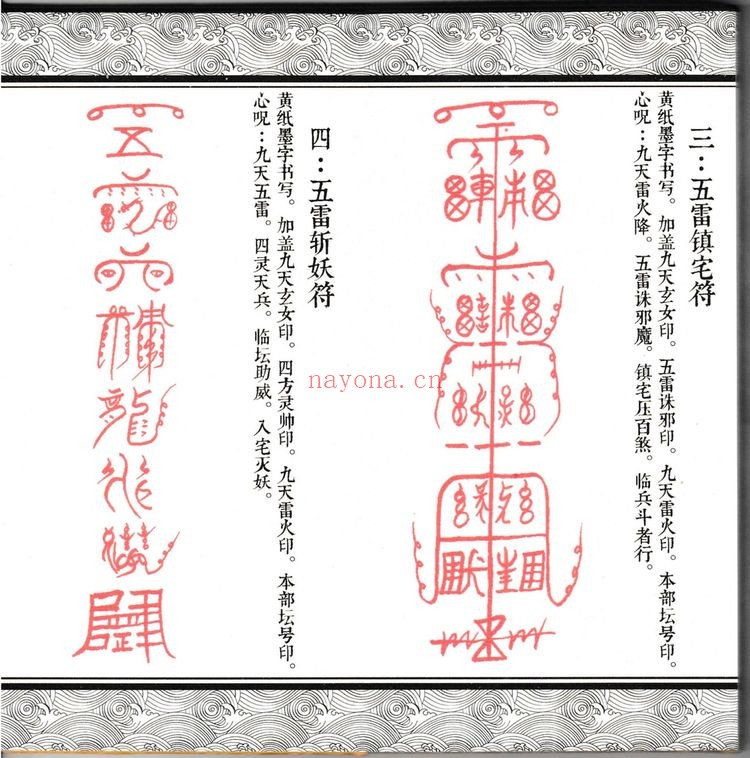 三：五雷镇宅符
黄纸墨字书写。加盖九天玄女印。五雷诛邪印。九天雷火印。本部坛号印。
心咒：九天雷火降。五雷诛邪魔。镇宅压百煞。临兵斗者行。
四：五雷斩妖符
黄纸墨字书写。加盖九天玄女印。四方灵帅印。九天雷火印。本部坛号印。
心咒：九天五雷。四灵天兵。临坛助威。入宅灭妖。
nayona.cn